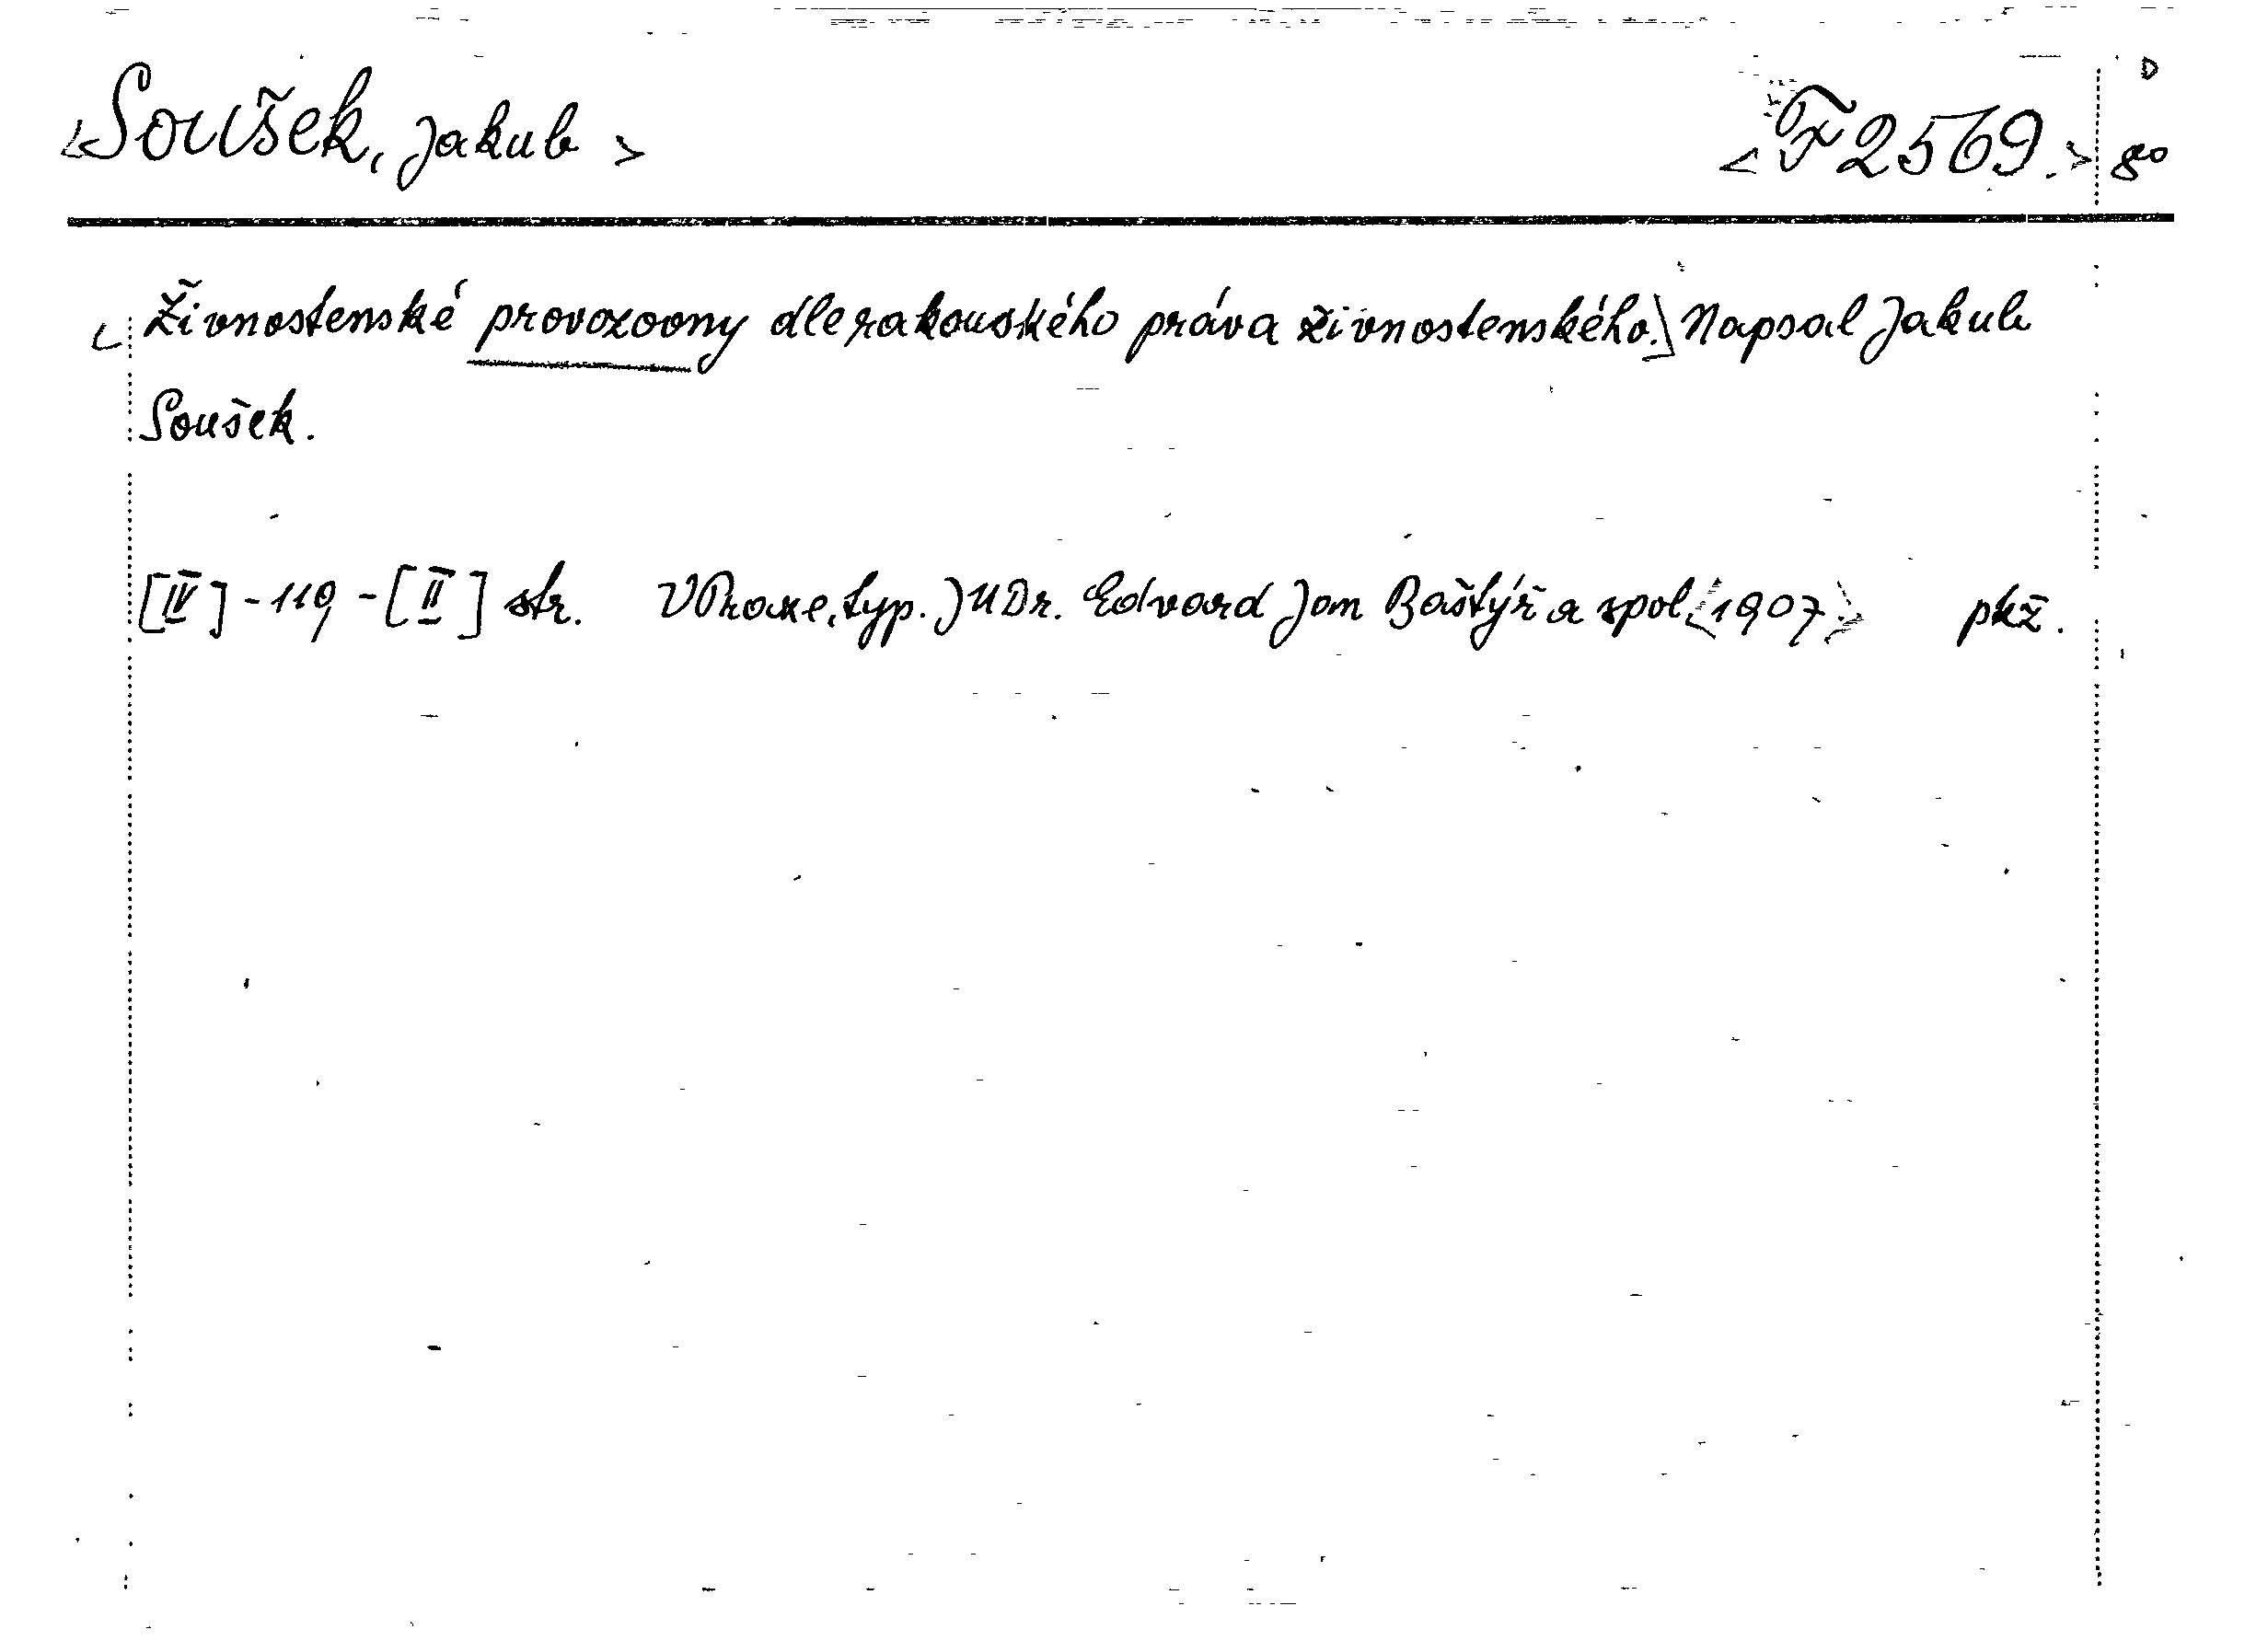 D
<Soušek, Jakub> <F 2569.> 8°
<Živnostenské provozovny dle rakouského práva živnostenského.> Napsal Jakub
Soušek.
[IV] - 119 - [II] str. V Praze, typ. JUDr. Edvard Jan Baštýř a spol <1907> pkž.